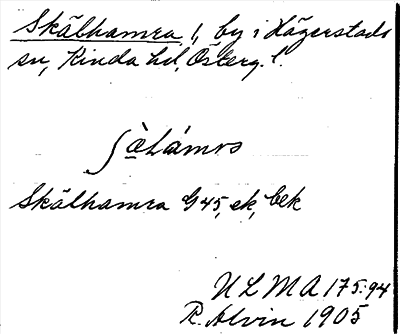 Skälhamra 1, by i Hägerstads
sn, Kinda hd, Österg. l.
ʃæ̀Lámrɒ
Skälhamra G45, ek, bek
ULMA 175:94
R. Alvin 1905